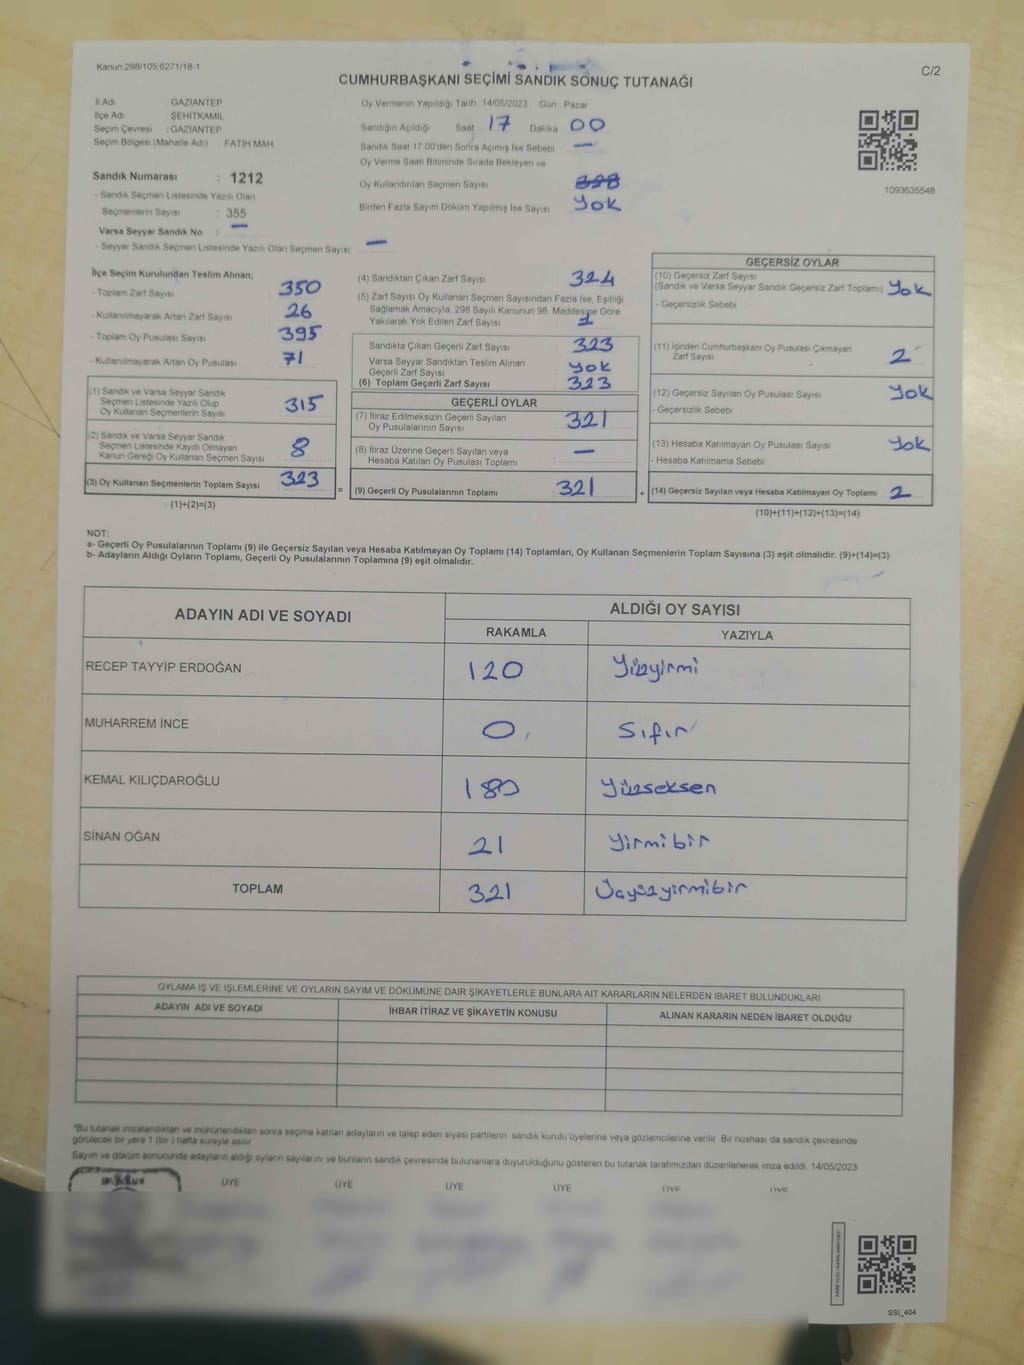 Kanun:298/105,6271/18-1
C/2
CUMHURBAŞKANI SEÇİMİ SANDIK SONUÇ TUTANAĞI
İl Adı GAZİANTEP
İlçe Adı ŞEHİTKAMİL
Seçim Çevresi : GAZİANTEP
Seçim Bölgesi (Mahalle Adı) FATİH MAH.
Sandık Numarası : 1212
- Sandık Seçmen Listesinde Yazılı Olan
Seçmenlerin Sayısı : 355
Varsa Seyyar Sandık No : —
- Seyyar Sandık Seçmen Listesinde Yazılı Olan Seçmen Sayısı —
Oy Vermenin Yapıldığı Tarih 14/05/2023 Gün Pazar
Sandığın Açıldığı Saat 17 Dakika 00
Sandık Saat 17.00'den Sonra Açımış İse Sebebi —
Oy Verme Saati Bitiminde Sırada Bekleyen ve
Oy Kullandırılan Seçmen Sayısı
Birden Fazla Sayım Döküm Yapılmış İse Sayısı Yok
1093635548
İlçe Seçim Kurulundan Teslim Alınan;
- Toplam Zarf Sayısı 350
- Kullanılmayarak Artan Zarf Sayısı 26
- Toplam Oy Pusulası Sayısı 395
- Kullanılmayarak Artan Oy Pusulası 71
(1) Sandık ve Varsa Seyyar Sandık
Seçmen Listesinde Yazılı Olup
Oy Kullanan Seçmenlerin Sayısı 315
(2) Sandık ve Varsa Seyyar Sandık
Seçmen Listesinde Kayıtlı Olmayan
Kanun Gereği Oy Kullanan Seçmen Sayısı 8
(3) Oy Kullanan Seçmenlerin Toplam Sayısı 323
(1)+(2)=(3)
(4) Sandıktan Çıkan Zarf Sayısı 324
(5) Zarf Sayısı Oy Kullanan Seçmen Sayısından Fazla İse, Eşitliği
Sağlamak Amacıyla, 298 Sayılı Kanunun 98. Maddesine Göre
Yakılarak Yok Edilen Zarf Sayısı 1
Sandıkta Çıkan Geçerli Zarf Sayısı 323
Varsa Seyyar Sandıktan Teslim Alınan
Geçerli Zarf Sayısı Yok
(6) Toplam Geçerli Zarf Sayısı 323
GEÇERLİ OYLAR
(7) İtiraz Edilmeksizin Geçerli Sayılan
Oy Pusulalarının Sayısı 321
(8) İtiraz Üzerine Geçerli Sayılan veya
Hesaba Katılan Oy Pusulası Toplamı —
= (9) Geçerli Oy Pusulalarının Toplamı 321 +
GEÇERSİZ OYLAR
(10) Geçersiz Zarf Sayısı
(Sandık ve Varsa Seyyar Sandık Geçersiz Zarf Toplamı) Yok
- Geçersizlik Sebebi
(11) İçinden Cumhurbaşkanı Oy Pusulası Çıkmayan
Zarf Sayısı 2
(12) Geçersiz Sayılan Oy Pusulası Sayısı Yok
- Geçersizlik Sebebi
(13) Hesaba Katılmayan Oy Pusulası Sayısı Yok
- Hesaba Katılmama Sebebi
(14) Geçersiz Sayılan veya Hesaba Katılmayan Oy Toplamı 2
(10)+(11)+(12)+(13)=(14)
NOT:
a- Geçerli Oy Pusulalarının Toplamı (9) ile Geçersiz Sayılan veya Hesaba Katılmayan Oy Toplamı (14) Toplamları, Oy Kullanan Seçmenlerin Toplam Sayısına (3) eşit olmalıdır. (9)+(14)=(3)
b- Adayların Aldığı Oyların Toplamı, Geçerli Oy Pusulalarının Toplamına (9) eşit olmalıdır.
ADAYIN ADI VE SOYADI ALDIĞI OY SAYISI
RAKAMLA YAZIYLA
RECEP TAYYİP ERDOĞAN 120 Yüzyirmi
MUHARREM İNCE 0 Sıfır
KEMAL KILIÇDAROĞLU 180 Yüzseksen
SİNAN OĞAN 21 Yirmibir
TOPLAM 321 Üçyüzyirmibir
OYLAMA İŞ VE İŞLEMLERİNE VE OYLARIN SAYIM VE DÖKÜMÜNE DAİR ŞİKAYETLERLE BUNLARA AİT KARARLARIN NELERDEN İBARET BULUNDUKLARI
ADAYIN ADI VE SOYADI İHBAR İTİRAZ VE ŞİKAYETİN KONUSU ALINAN KARARIN NEDEN İBARET OLDUĞU
*Bu tutanak imzalandıktan ve mühürlendikten sonra seçime katılan adayların ve talep eden siyasi partilerin sandık kurulu üyelerine veya gözlemcilerine verilir. Bir nüshası da sandık çevresinde
görülecek bir yere 1 (bir) hafta süreyle asılır.
Sayım ve döküm sonucunda adayların aldığı oyların sayılarını ve bunların sandık çevresinde bulunanlara duyurulduğunu gösteren bu tutanak tarafımızdan düzenlenerek imza edildi. 14/05/2023
ÜYE ÜYE ÜYE ÜYE ÜYE ÜYE
SSI_404